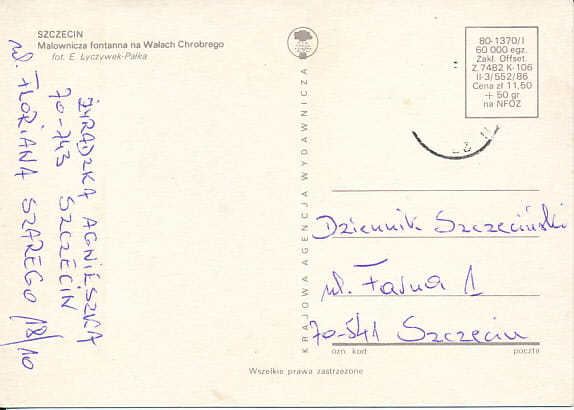 SZCZECIN
Malownicza fontanna na Wałach Chrobrego
fot. E. Łyczywek-Pałka
AGNIESZKA
70-743 SZCZECIN
ul. FLORIANA SZAREGO 18/10
KRAJOWA AGENCJA WYDAWNICZA
80-1370/I
60 000 egz.
Zakł. Offset.
Z. 7482 K-106
II-3/552/86
Cena zł 11,50
+ 50 gr
na NFOZ
Dziennik Szczeciński
ul. Farna 1
70-541 Szczecin
ozn. kod poczta
Wszelkie prawa zastrzeżone